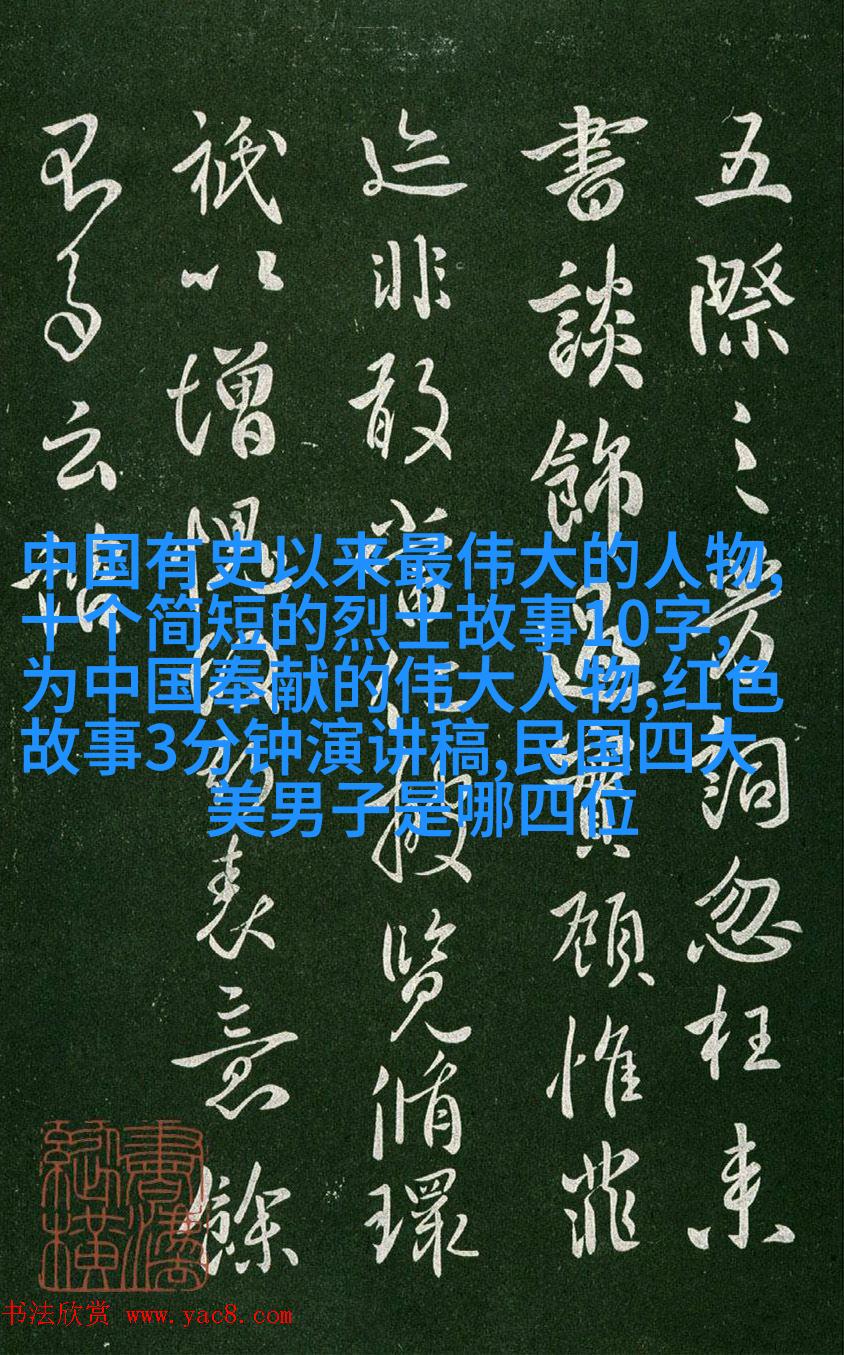 五際之詞忽枉来
書談飾過實顧惟菲
迹非敢當覽脩環
祇以增愧表意餘
云
中国有史以来最伟大的人物,
十个简短的烈士故事10字,
为中国奉献的伟大人物,红色
故事3分钟演讲稿,民国四大
美男子是哪四位
书法欣赏 www.yac8.com